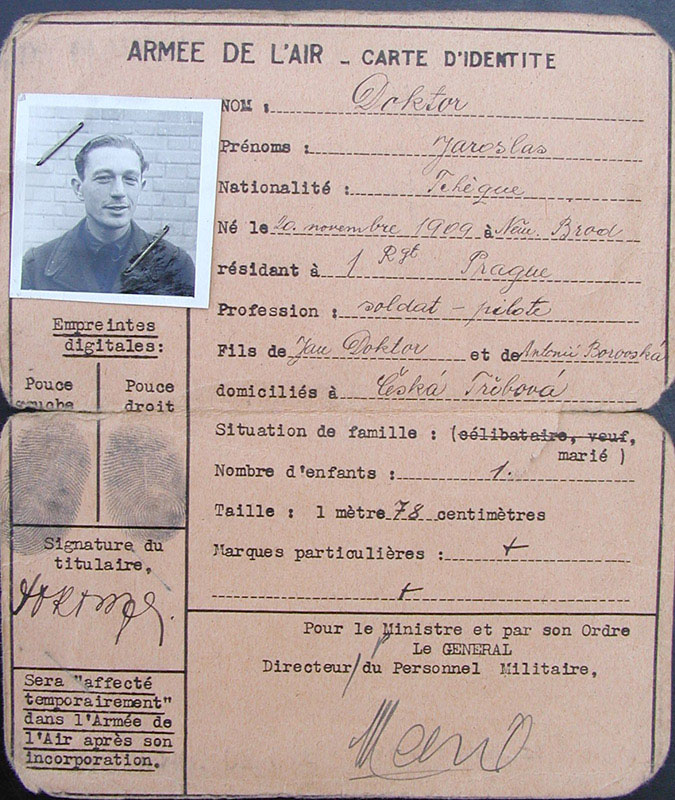 ARMEE DE L'AIR - CARTE D'IDENTITE
NOM : Doktor
Prénoms : Jaroslas
Nationalité : Tchèque
Né le 20. novembre 1909 à Něm. Brod
résidant à 1 Rgt Prague
Profession : soldat - pilote
Fils de Jan Doktor et de Antonii Borovská
domiciliés à Česká Třbová
Situation de famille : (célibataire, veuf,
marié )
Nombre d'enfants : 1.
Taille : 1 mètre 78 centimètres
Marques particulières : +
+
Empreintes
digitales:
Pouce
gauche
Pouce
droit
Signature du
titulaire,
Sera "affecté
temporairement"
dans l'Armée de
l'Air après son
incorporation.
Pour le Ministre et par son Ordre
Le GENERAL
Directeur du Personnel Militaire,